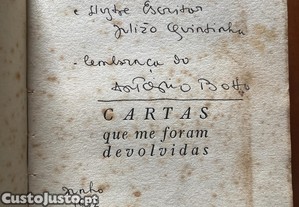 e Ilustre Escritor
Julião Quintinha
- lembrança do
António Botto
CARTAS
que me foram
devolvidas
Junho
CustoJusto.pt